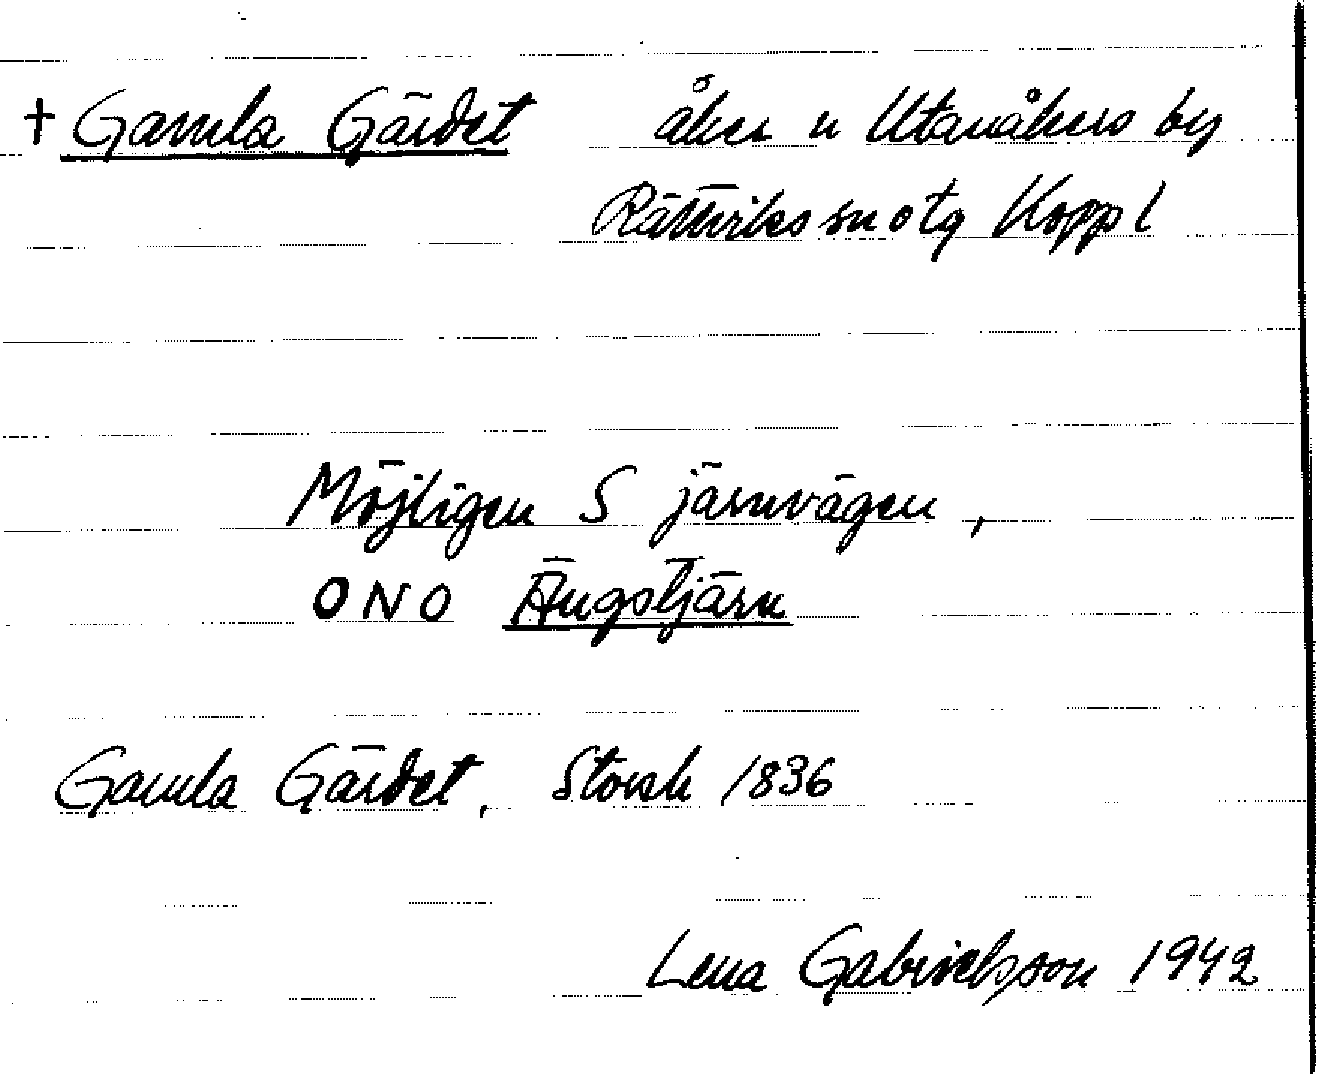 + Gamla Gärdet åker u Utanåkers by
Rättviks sn o tg Koppl
Möjligen S järnvägen,
ONO Ängstjärn
Gamla Gärdet, Storsk 1836
Lena Gabrielsson 1942